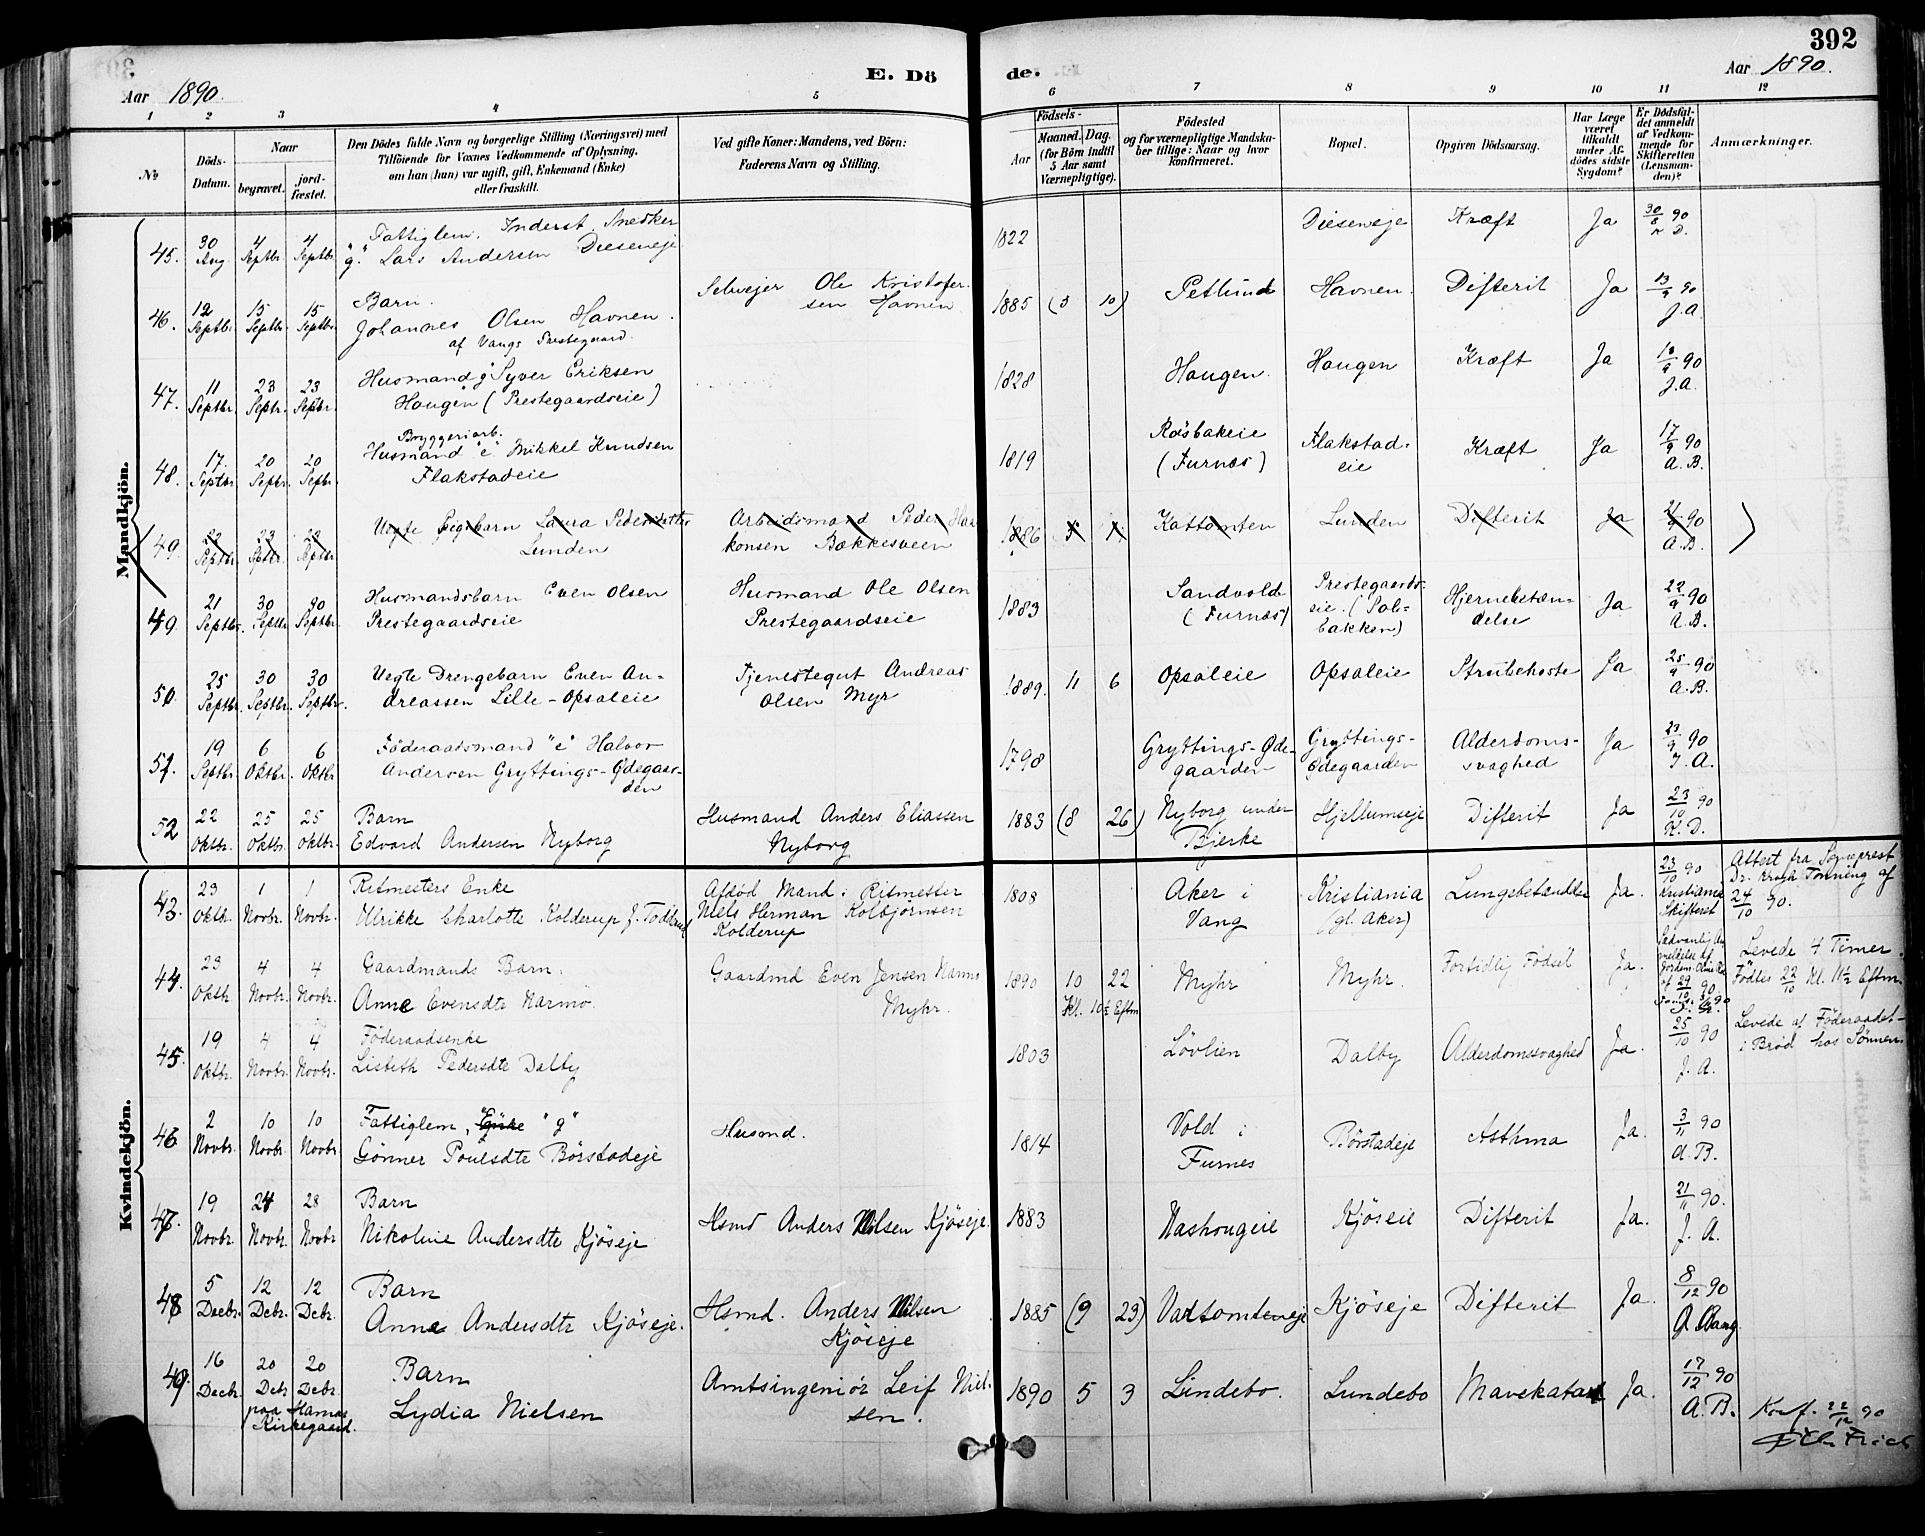 392
E. Dö
de.
Aar 1890.
Aar 1890.
1 2 3 4 5 6 7 8 9 10 11 12
No
Döds-Datum.
Naar
begravet.
jordfæstet.
Den Dödes fulde Navn og borgerlige Stilling (Næringsvei) med
Tilföiende for Voxnes Vedkommende af Oplysning,
om han (hun) var ugift, gift, Enkemand (Enke)
eller fraskilt.
Ved gifte Koner: Mandens, ved Börn:
Faderens Navn og Stilling.
Födsels-
Aar
Maaned. Dag.
(for Börn indtil
5 Aar samt
Værnepligtige).
Födested
og for værnepligtige Mandskaber
tillige: Naar og hvor
konfirmeret.
Bopæl.
Opgiven Dödsaarsag.
Har Læge
været
tilkaldt
under Afdödes
sidste
Sygdom?
Er Dödsfaldet
anmeldt
af Vedkommende
for
Skifteretten
(Lensmanden)?
Anmærkninger.
Mandkjön.
45. 30 Aug. 4 Septbr. 4 Septbr. Fattiglem. Inderst. Snedker "g." Lars Andersen Dieseneje 1822 Dieseneje Kræft Ja 30/8 90
46. 12 Septbr. 15 Septbr. 15 Septbr. Barn. Johannes Olsen Havnen. af Vangs Prestegaard. Selvejer Ole Kristofersen Havnen 1885 (3 10) Petlund Havnen. Difterit Ja 13/9 90 J.A.
47. 11 Septbr. 23 Septbr. 23 Septbr. Husmand "g" Syver Eriksen Haugen (Prestegaardseie) 1828 Haugen. Haugen Kræft Ja 13/9 90 J.A.
48. 17. Septbr 20 Septbr. 20 Septbr. Bryggeriarb. Husmand "e" Mikkel Knudsen Flakstadeie 1819 Rösbakeie (Furnæs) Flakstadeie Kræft Ja 17/9 90 A.B.
49. 22 Septbr. 23 Septbr. 23 Septbr. Uegte Pigebarn Laura Pedersdatter Lunden Arbeidsmand Peder Haakonsen Bækkesveen 1886 Kattomten Lunden Difterit Ja 21/9 90 A.B.
49 21 Septbr. 30 Septbr 30 Septbr. Husmandsbarn Even Olsen Prestegaardseie Husmand Ole Olsen Prestegaardseie 1883 Sandvold (Furnæs) Prestegaardseie. (Solbakken) Hjernebetændelse Ja 22/9 90 A.B.
50 25 Septbr. 30 Septbr. 30 Septbr. Uegte Drengebarn Even Andreassen Lille-Opsaleie Tjenestegut Andreas Olsen Myr 1889. 11 6 Opsaleie Opsaleie Strubehoste Ja 25/9 90 A.B.
51. 19 Septbr. 6 Oktbr. 6 Oktbr Föderaadsmand "e" Halvor Andersen Gryttings-Ödegaarden 1798 Gryttings-Ödegaarden Gryttings-Ödegaarden Alderdomssvaghed Ja 23/9 90 J.A.
52 22 Oktbr. 25 Oktbr. 25 Oktbr. Barn Edvard Andersen Nyborg Husmand Anders Eliassen Nyborg 1883 (8 26) Nyborg under Bjerke Hjellumseje Difterit Ja 23/10 90 K.D.
Kvindekjön.
43. 23 Oktbr. 1 Novbr. 1 Novbr. Ritmesters Enke Ulrikke Charlotte Kolderup f. Afdöd Mand: Ritmester Niels Herman Kolbjörnsen Kolderup 1808 Aker i Vang Kristiania (gl. Aker) Lungebetændelse Ja. 23/10 90 Kristiania Skifteret Attest fra Sogneprest Dr. Krogh Tonning af 24/10 90.
44. 23 Oktbr. 4 Novbr. 4 Novbr. Gaardmands Barn. Anne Evensdtr Narmo. Gaardmd Even Jensen Narmo Myhr. 1890 10 22 Kl. 10½ Eftm Myhr Myhr. Fortidlig Födsel Ja. Levede 4 Timer. Födtes 22/10 Kl. 11½ Eftm.
45. 19 Oktbr. 4 Novbr. 4 Novbr. Föderaadsenke Lisbeth Pedersdtr Dalby 1803 Lövlien Dalby Alderdomssvaghed Ja. 25/10 90 J.A. Levede af Föderaadet i Bröd hos Sönnen.
46 2 Novbr. 10 Novbr. 10 Novbr. Fattiglem, "Enke" "g" Gönner Poulsdtr Börstadeje Husmd. 1814 Vold i Furnes Börstadeje Asthma Ja. 3/11 90 A.B.
47. 19 Novbr. 24 Novbr. 28 Novbr Barn Nikoline Andersdtr Kjöseje Hsmd Anders Nilsen Kjöseje. 1883 Nashougeie Kjöseie Difterit Ja. 21/11 90. J.A.
48 5 Decbr. 12 Decbr. 12 Decbr. Barn Anne Andersdtr Kjöseje. Hsmd. Anders Nilsen Kjöseje 1885 (9 23) Vattomteneje Kjöseje Difterit Ja. 8/12 90 A. Bang
49. 16 Decbr. 20 Decbr 20 Decbr. paa Hamar Kirkegaard. Barn Lydia Nielsen Amtsingeniör Leif Nielsen. 1890 5 3 Lindebo. Lundebo Mavekatarr Ja. 17/12 90 A.B.
Konf. 22/12 90